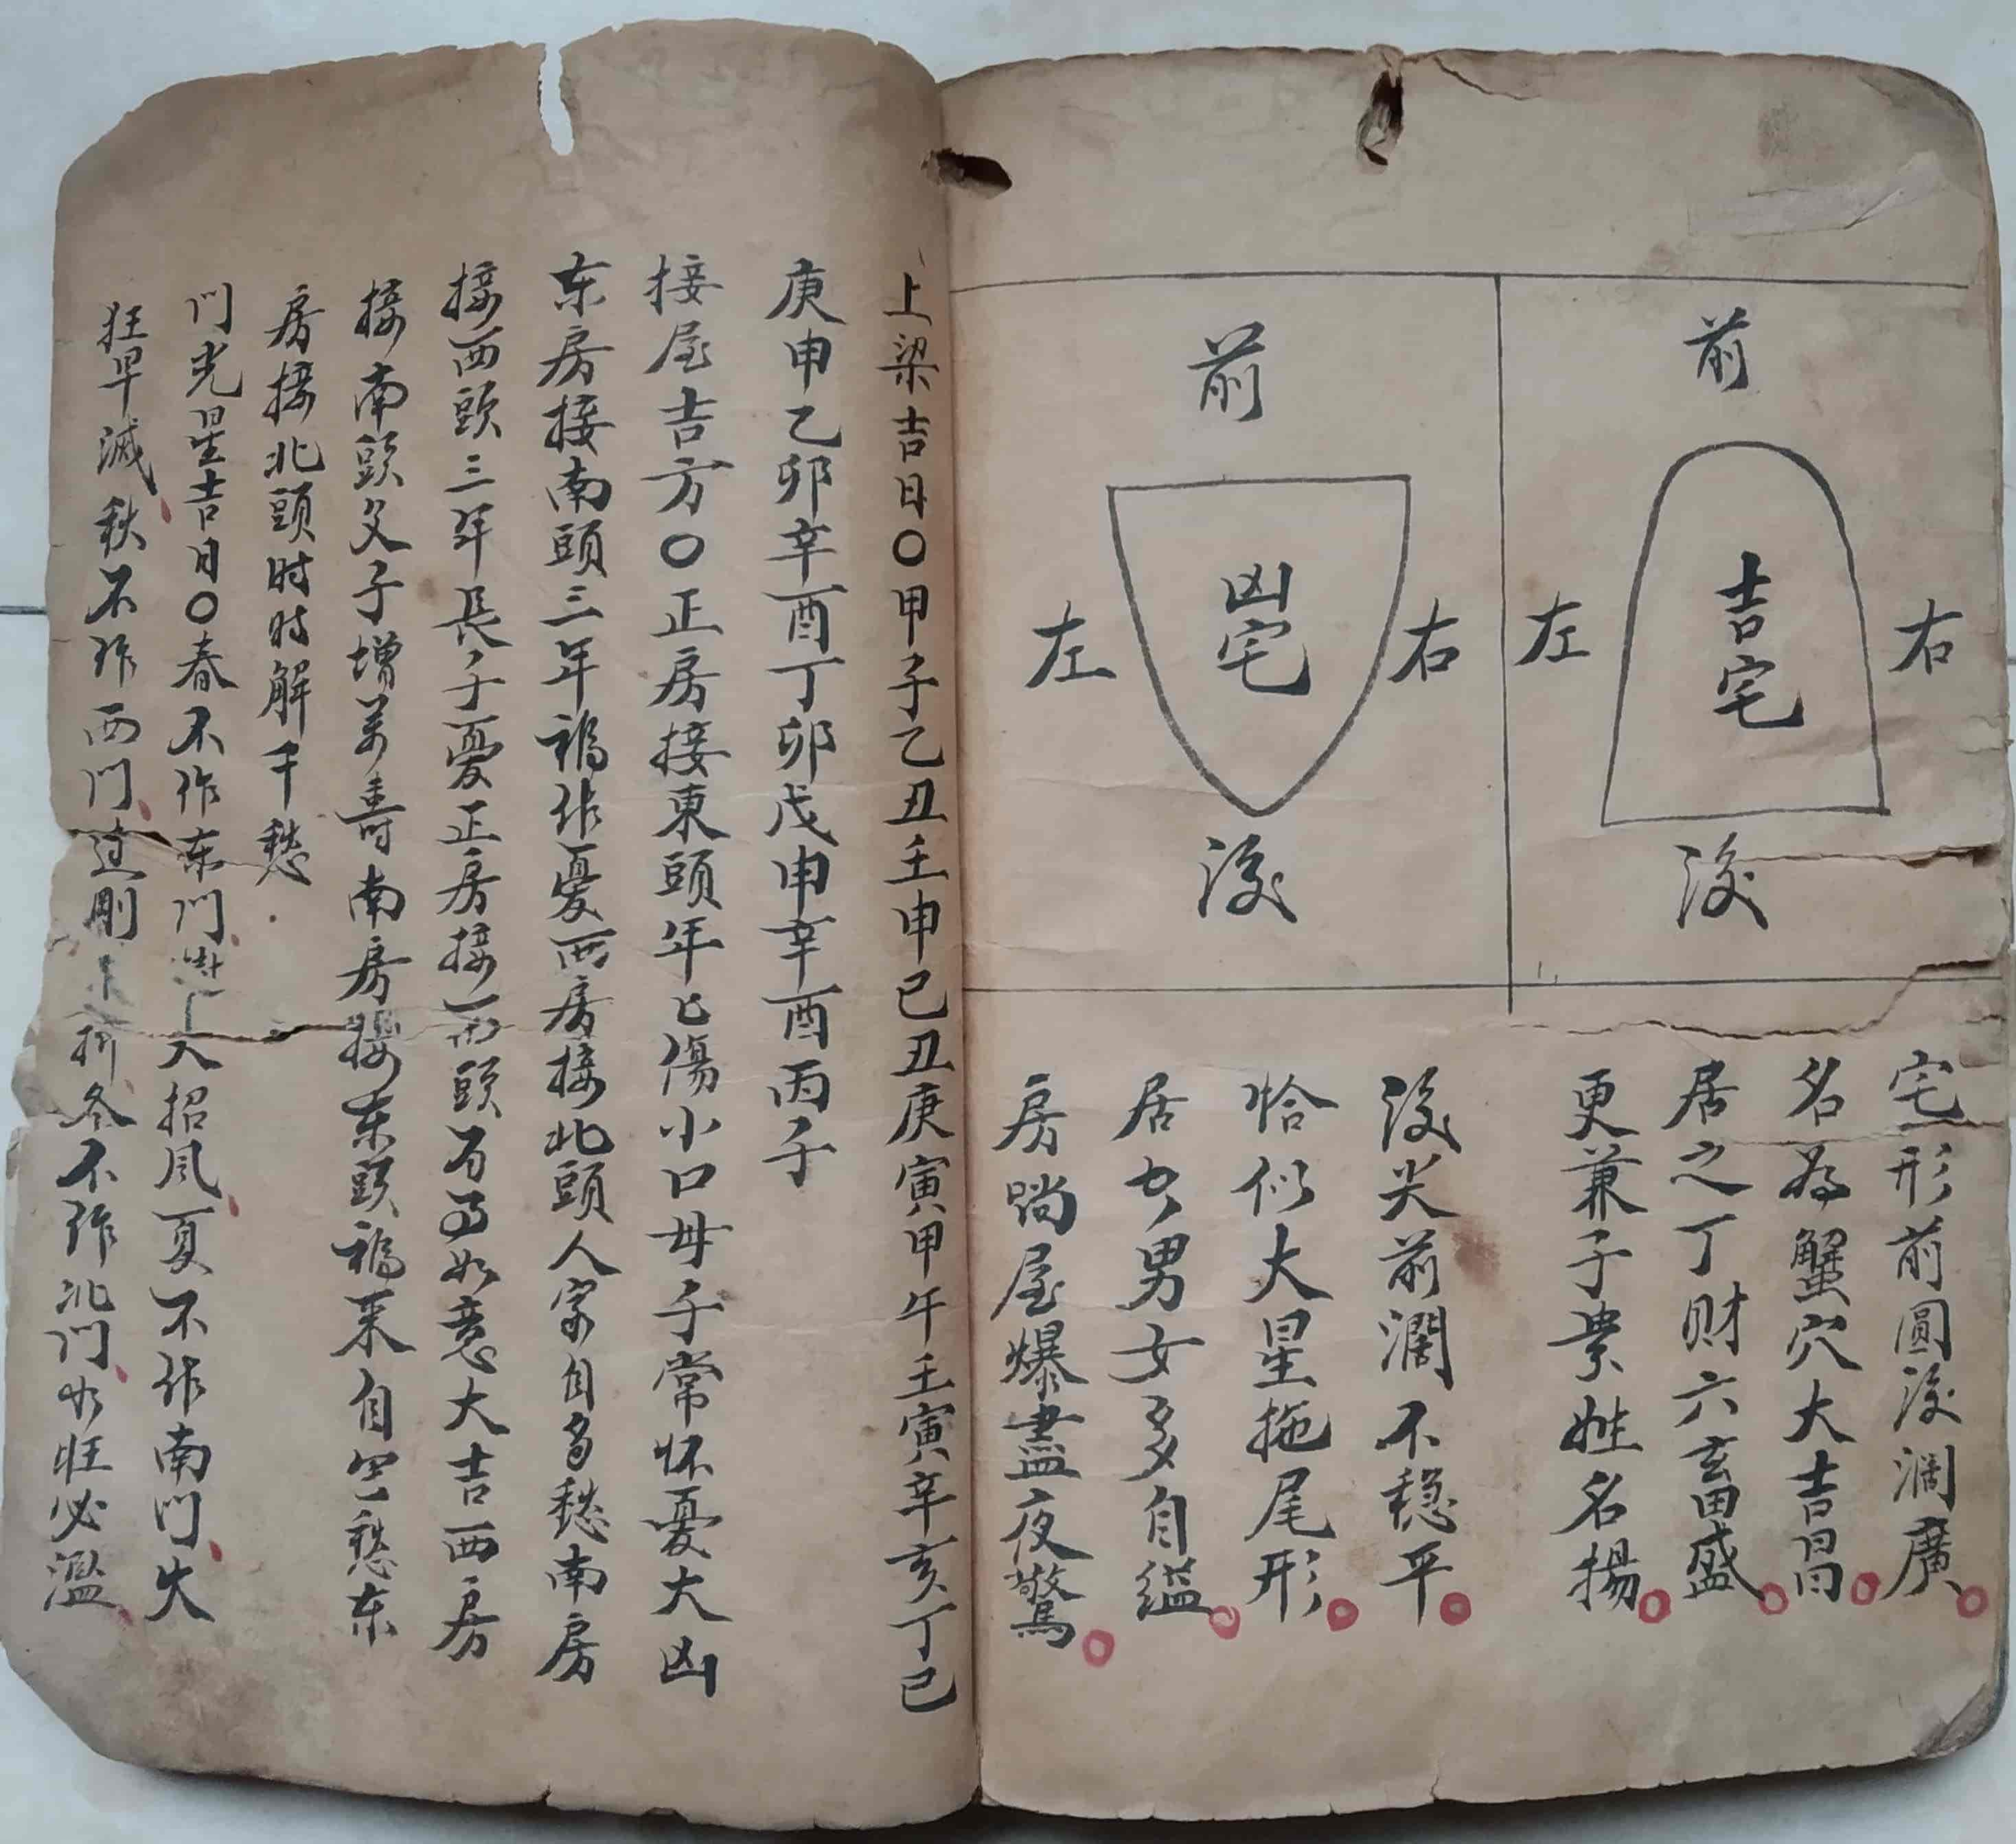 前
左
吉宅
右
後
前
左
凶宅
右
後
宅形前圓後濶廣
名為蟹穴大吉昌
居之丁财六畜盛
更兼子業姓名揚
後尖前濶不稳平
恰似大星拖尾形
居女男女多自缢
房㘯屋爆盡夜驚
上梁吉日〇甲子乙丑壬申己丑庚寅甲午壬寅辛亥丁已
庚申乙卯辛酉丁卯戊申辛酉丙子
接屋吉方〇正房接東頭年匕傷小口母子常怀憂大凶
东房接南頭三年禍作憂西房接北頭人家自多愁南房
接西頭三年長子憂正房接西頭万事如意大吉西房
接南頭父子增萬壽南房接东頭禍来自空愁东
房接北頭时时解千愁
门光星吉日〇春不作东门 入招风夏不作南门火
狂早滅秋不作西门 刚 折冬不作北门水旺必濫